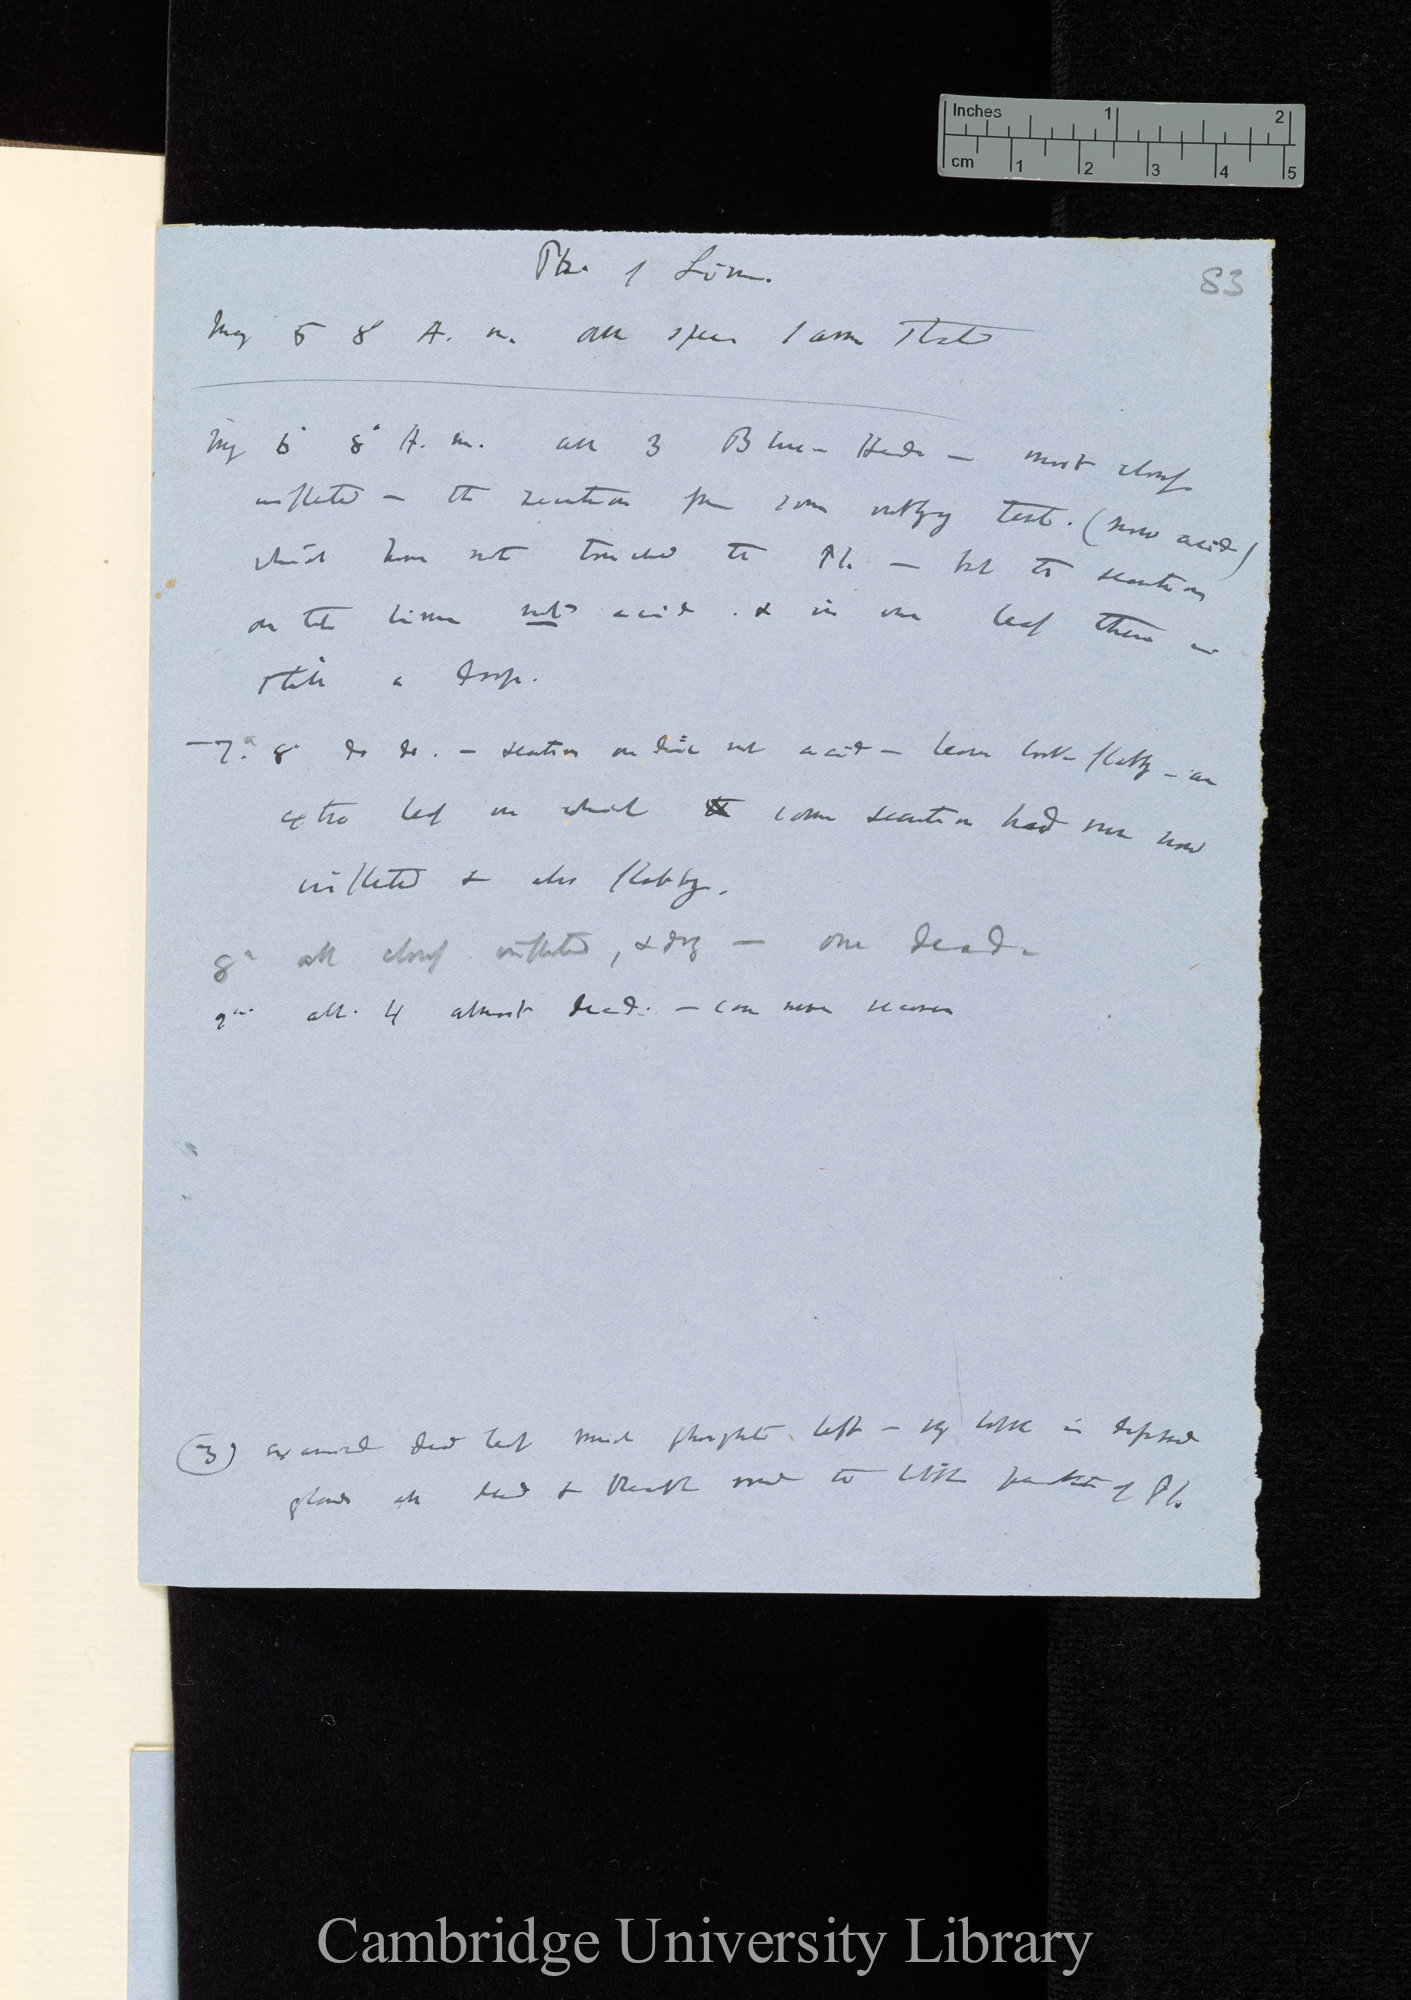 Inches 1 2
cm 1 2 3 4 5
83
Pho. of Lime.
May 5 8° A. m. all same state
May 6° 8° A. m. all 3 Blue-Heads — most closely
inflected — the secretion from some test. (now acid)
which have not touched the Ph. — but the secretion
on the lime not acid . & in one leaf there is
still a drop.
— 7.° 8° do do. — secretion on not acid — leaves look flabby — an
extra leaf on which some secretion had run now
inflected & also flabby.
8° all closely inflected, & dry — one dead.
9° all. 4 almost dead. — can never recover
(3) examined dead leaf much phosphate left — in
glands all dead & black next to little of Ph.
Cambridge University Library